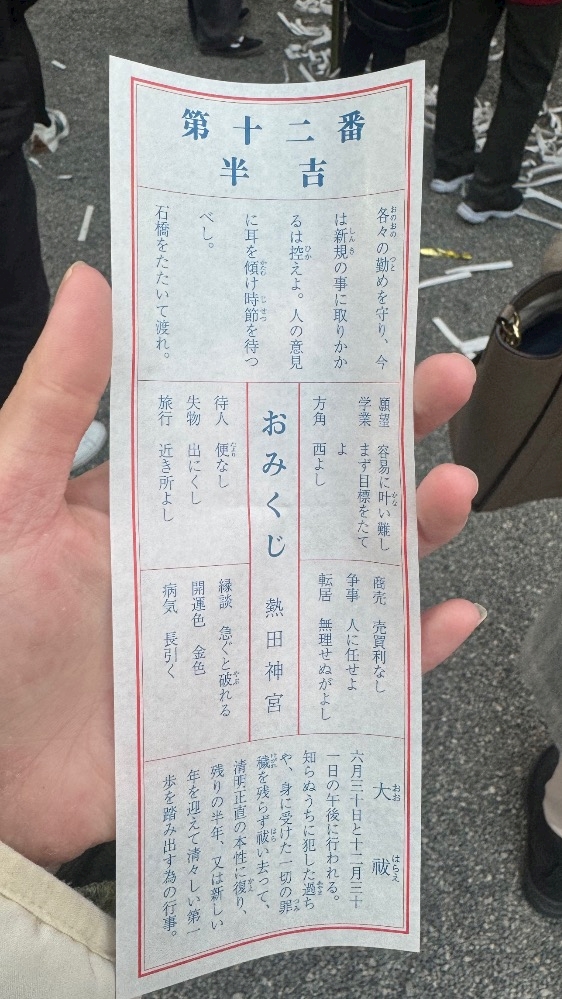 第十二番
半吉
各々の勤めを守り、今
は新規の事に取りかか
るは控えよ。人の意見
に耳を傾け時節を待つ
べし。
石橋をたたいて渡れ。
願望 容易に叶い難し
学業 まず目標をたて
よ
方角 西よし
商売 売買利なし
争事 人に任せよ
転居 無理せぬがよし
おみくじ 熱田神宮
待人 便なし
失物 出にくし
旅行 近き所よし
縁談 急ぐと破れる
開運色 金色
病気 長引く
大祓
六月三十日と十二月三十
一日の午後に行われる。
知らぬうちに犯した過ち
や、身に受けた一切の罪
穢を残らず祓い去って、
清明正直の本性に復り、
残りの半年、又は新しい
年を迎えて清々しい第一
歩を踏み出す為の行事。